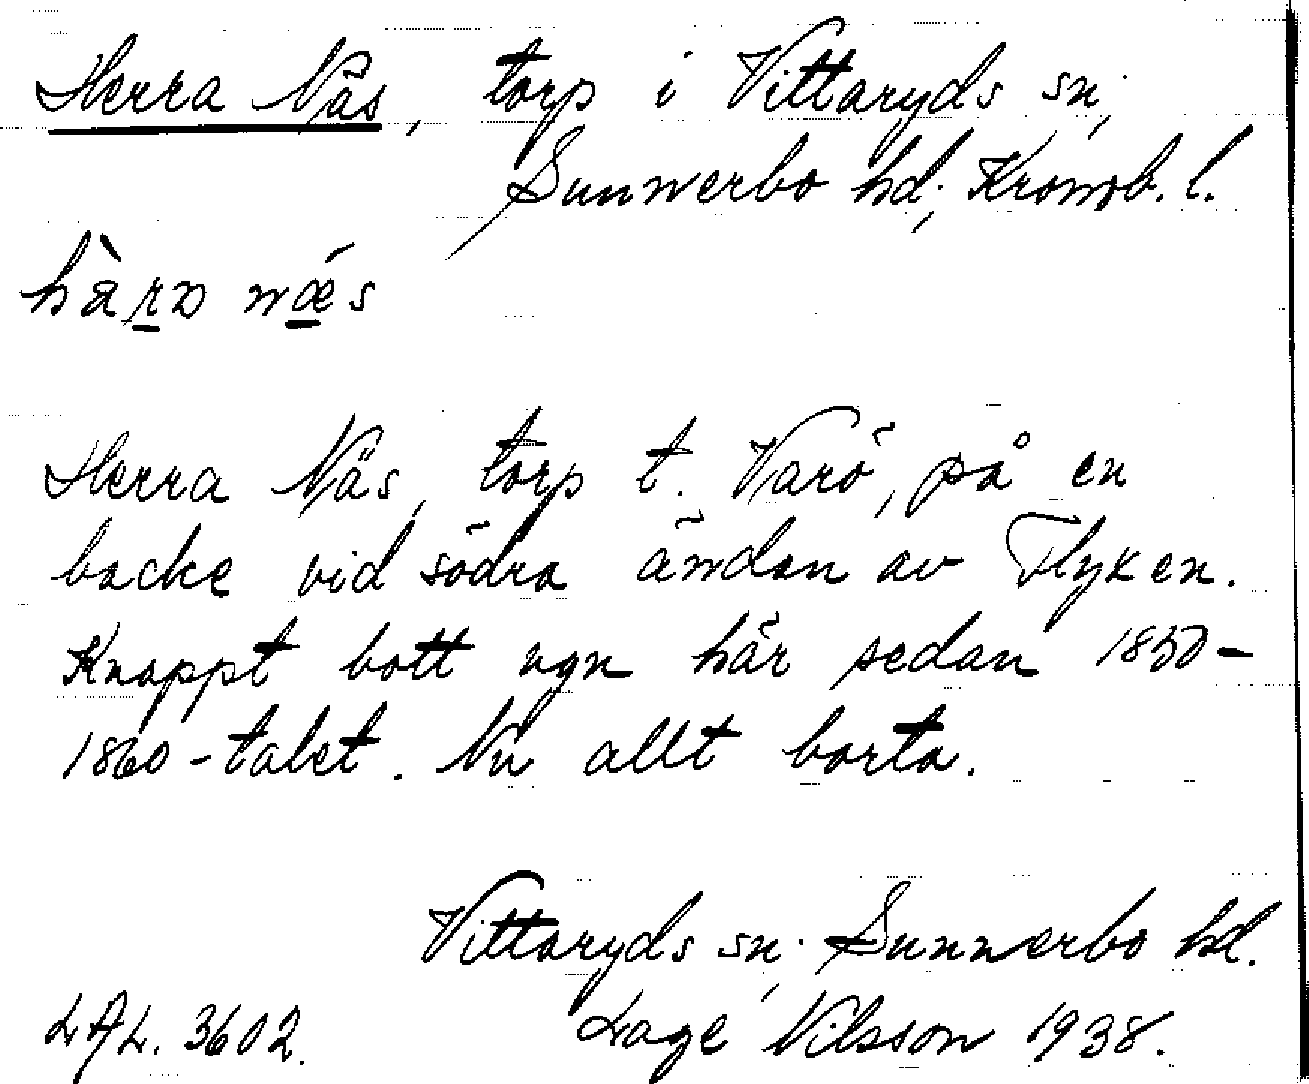 Herra Näs, torp i Vittaryds sn,
Sunnerbo hd, Kronob. l.
hàrɒ nǽs
Herra Näs, torp t. Varö, på en
backe vid södra ändan av Flyken.
Knappt bott ngn här sedan 1850-
1860-talet. Nu allt borta.
Vittaryds sn, Sunnerbo hd.
LAL. 3602. Lage Nilsson 1938.